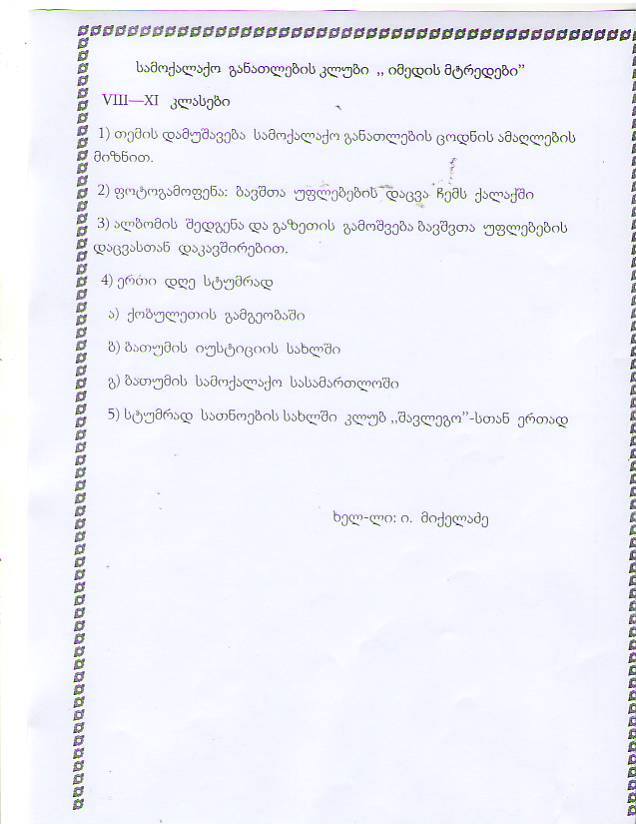 სამოქალაქო განათლების კლუბი ,, იმედის მტრედები”
VIII—XI კლასები
1) თემის დამუშავება სამოქალაქო განათლების ცოდნის ამაღლების
მიზნით.
2) ფოტოგამოფენა: ბავშთა უფლებების დაცვა ჩემს ქალაქში
3) ალბომის შედგენა და გაზეთის გამოშვება ბავშვთა უფლებების
დაცვასთან დაკავშირებით.
4) ერთი დღე სტუმრად
ა) ქობულეთის გამგეობაში
ბ) ბათუმის იუსტიციის სახლში
გ) ბათუმის სამოქალაქო სასამართლოში
5) სტუმრად სათნოების სახლში კლუბ ,,შავლეგო”-სთან ერთად
ხელ-ლი: ი. მიქელაძე